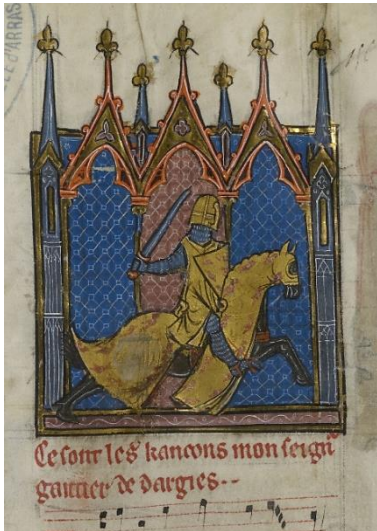 LE D'ARRAS
Ce sont les kancons mon seign
gautier de dargies..